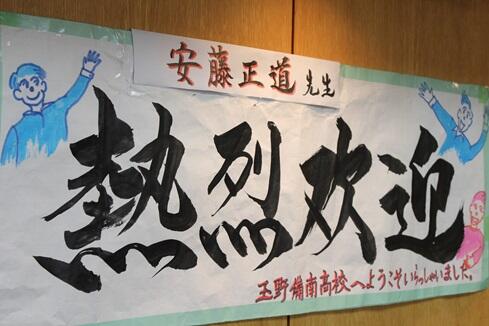 安藤正道先生
熱烈欢迎
玉野備南高校へようこそいらっしゃいました。